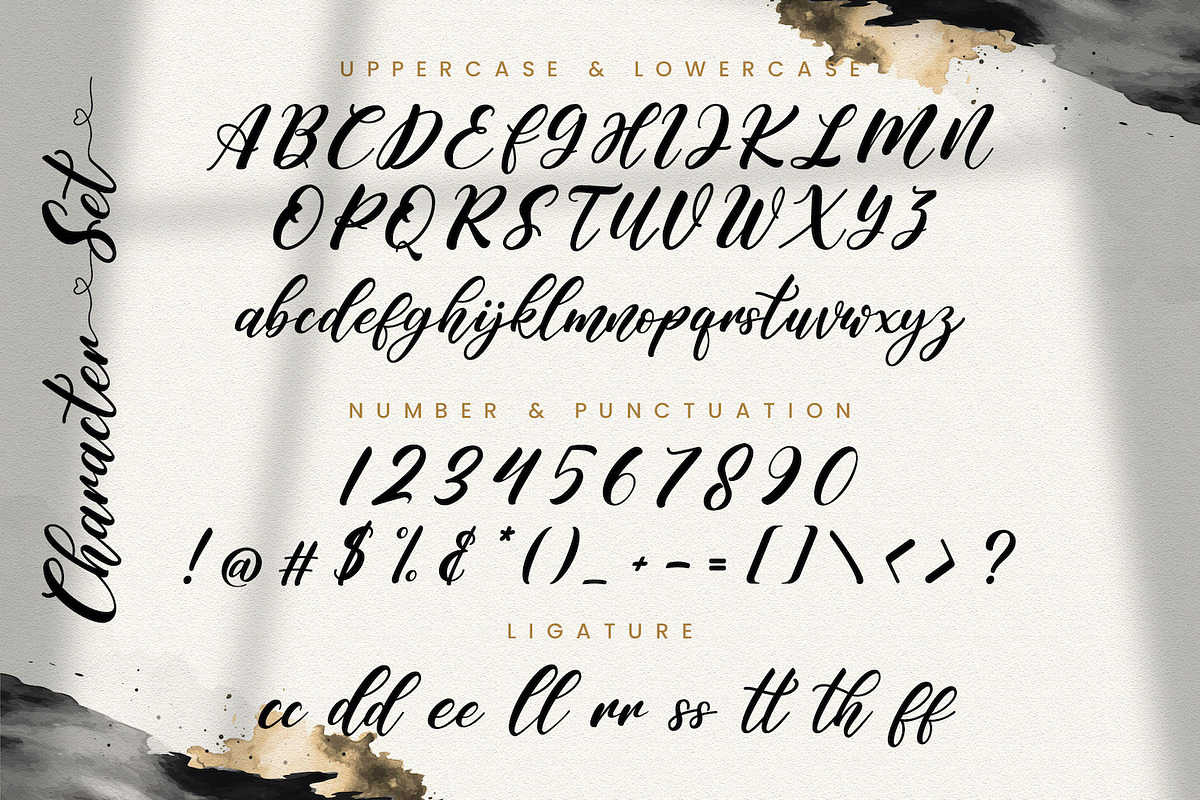 Character Set
UPPERCASE & LOWERCASE
ABCDEFGHIJKLMN
OPQRSTUVWXYZ
abcdefghijklmnopqrstuvwxyz
NUMBER & PUNCTUATION
1234567890
! @ # $ % & * ( ) _ + - = [ ] \ < > ?
LIGATURE
cc dd ee ll rr ss tt th ff